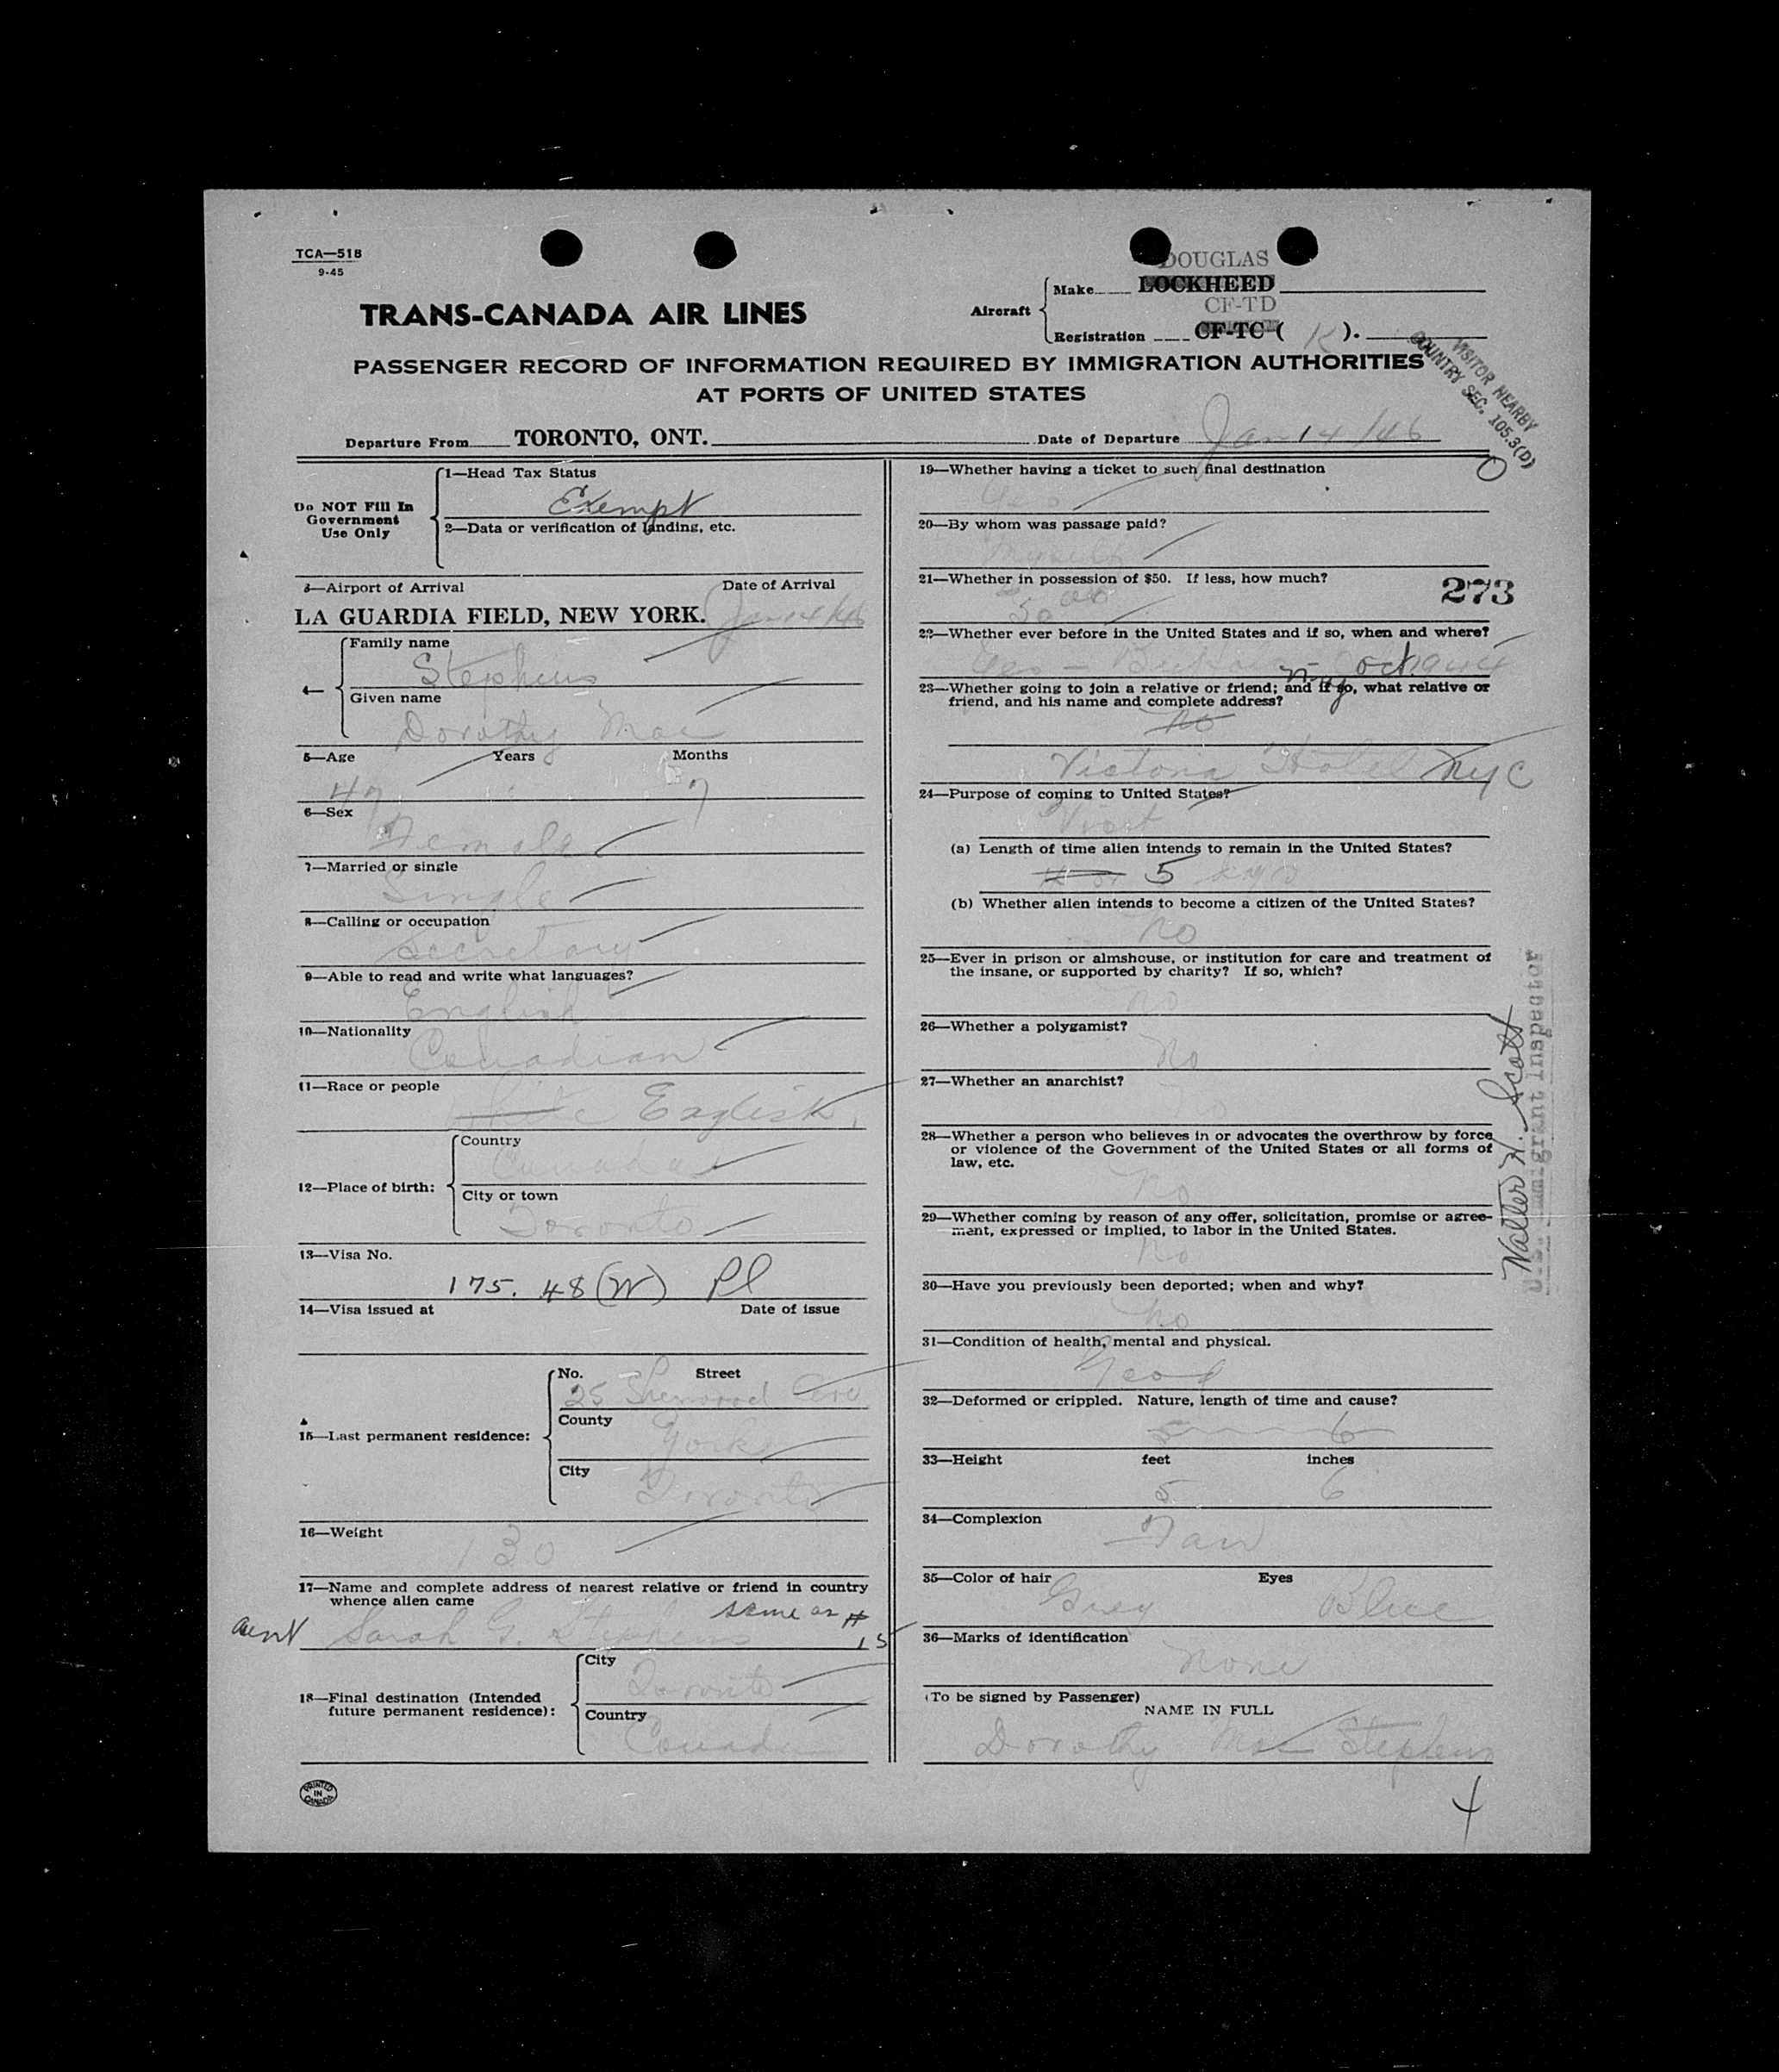 TCA—518
9-45
TRANS-CANADA AIR LINES
Aircraft
Make
DOUGLAS
LOCKHEED
CF-TD
Registration CF-TC-( K ).
PASSENGER RECORD OF INFORMATION REQUIRED BY IMMIGRATION AUTHORITIES
AT PORTS OF UNITED STATES
VISITOR NEARBY
COUNTRY SEC. 105.3(D)
Departure From TORONTO, ONT.
Date of Departure Jan 14/46
Do NOT Fill In
Government
Use Only
1—Head Tax Status
Exempt
2—Data or verification of landing, etc.
3—Airport of Arrival Date of Arrival
LA GUARDIA FIELD, NEW YORK. Jan 14/46
4—
Family name
Stephens
Given name
Dorothy Mae
5—Age Years Months
47 7
6—Sex
Female
7—Married or single
Single
8—Calling or occupation
Secretary
9—Able to read and write what languages?
English
10—Nationality
Canadian
11—Race or people
White English
12—Place of birth:
Country
Canada
City or town
Toronto
13—Visa No.
175. 48 (W) Pl
14—Visa issued at Date of issue
15—Last permanent residence:
No. Street
25 Sherwood Ave
County
York
City
Toronto
16—Weight
130
17—Name and complete address of nearest relative or friend in country
whence alien came
same as #
15
aunt Sarah G. Stephens
18—Final destination (Intended
future permanent residence):
City
Toronto
Country
Canada
PRINTED
IN
CANADA
19—Whether having a ticket to such final destination
Yes
20—By whom was passage paid?
Myself
21—Whether in possession of $50. If less, how much?
50 00
273
22—Whether ever before in the United States and if so, when and where?
Yes — Buffalo NY Oct. 1944
23—Whether going to join a relative or friend; and if so, what relative or
friend, and his name and complete address?
no
Victoria Hotel NYC
24—Purpose of coming to United States?
Visit
(a) Length of time alien intends to remain in the United States?
4 or 5 days
(b) Whether alien intends to become a citizen of the United States?
No
25—Ever in prison or almshouse, or institution for care and treatment of
the insane, or supported by charity? If so, which?
no
26—Whether a polygamist?
No
27—Whether an anarchist?
No
28—Whether a person who believes in or advocates the overthrow by force
or violence of the Government of the United States or all forms of
law, etc.
No
29—Whether coming by reason of any offer, solicitation, promise or agree-
ment, expressed or implied, to labor in the United States.
No
30—Have you previously been deported; when and why?
No
31—Condition of health, mental and physical.
Good
32—Deformed or crippled. Nature, length of time and cause?
5 6
33—Height feet inches
5 6
34—Complexion
Fair
35—Color of hair Eyes
Grey Blue
36—Marks of identification
None
(To be signed by Passenger)
NAME IN FULL
Dorothy Mae Stephens
4
Walter H. Scott
U.S. Immigrant Inspector